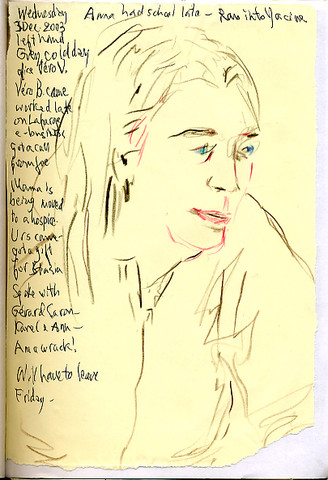 Wednesday
3 Dec. 2003
left hand
Grey, cold day
Véro V.
Véro B. came
worked late
on Lafarge
e-business
got a call
from Joe
Mama is
being moved
to a hospice.
Urs came
got a gift
for Stasia
Spoke with
Gérard Caron
Karel & Ann -
Am a wrack!
Will have to leave
Friday -
Anna had school late - Ran into Yacine